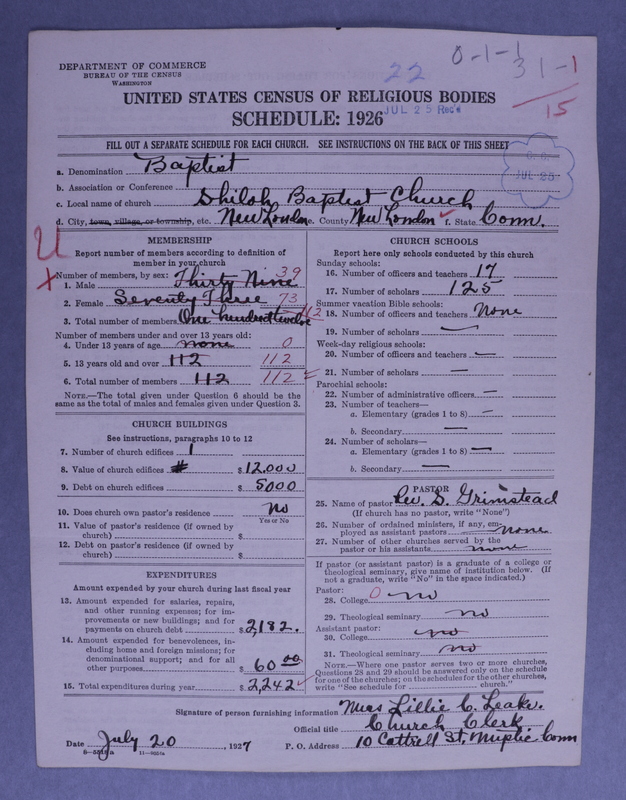 DEPARTMENT OF COMMERCE
BUREAU OF THE CENSUS
WASHINGTON
22
0-1-1
31-1
15
UNITED STATES CENSUS OF RELIGIOUS BODIES
SCHEDULE: 1926
JUL 25 Rec'd
FILL OUT A SEPARATE SCHEDULE FOR EACH CHURCH. SEE INSTRUCTIONS ON THE BACK OF THIS SHEET
JUL 28
a. Denomination Baptist
b. Association or Conference
c. Local name of church Shiloh Baptist Church
d. City, town, village, or township, etc. New London e. County New London f. State Conn.
MEMBERSHIP
Report number of members according to definition of
member in your church
Number of members, by sex:
1. Male Thirty Nine 39
2. Female Seventy Three 73
3. Total number of members One hundred twelve 112
Number of members under and over 13 years old:
4. Under 13 years of age none 0
5. 13 years old and over 112 112
6. Total number of members 112 112
NOTE.—The total given under Question 6 should be the
same as the total of males and females given under Question 3.
CHURCH BUILDINGS
See instructions, paragraphs 10 to 12
7. Number of church edifices 1
8. Value of church edifices # $12,000
9. Debt on church edifices $5000
10. Does church own pastor's residence No
Yes or No
11. Value of pastor's residence (if owned by
church) $
12. Debt on pastor's residence (if owned by
church) $
EXPENDITURES
Amount expended by your church during last fiscal year
13. Amount expended for salaries, repairs,
and other running expenses; for im-
provements or new buildings; and for
payments on church debt $2,182.
14. Amount expended for benevolences, in-
cluding home and foreign missions; for
denominational support; and for all
other purposes $60.00
15. Total expenditures during year $2,242
CHURCH SCHOOLS
Report here only schools conducted by this church
Sunday schools:
16. Number of officers and teachers 17
17. Number of scholars 125
Summer vacation Bible schools:
18. Number of officers and teachers None
19. Number of scholars —
Week-day religious schools:
20. Number of officers and teachers —
21. Number of scholars —
Parochial schools:
22. Number of administrative officers —
23. Number of teachers—
a. Elementary (grades 1 to 8) —
b. Secondary —
24. Number of scholars—
a. Elementary (grades 1 to 8) —
b. Secondary —
PASTOR
25. Name of pastor Rev. S. Grimstead
(If church has no pastor, write "None")
26. Number of ordained ministers, if any, em-
ployed as assistant pastors none
27. Number of other churches served by the
pastor or his assistants none
If pastor (or assistant pastor) is a graduate of a college or
theological seminary, give name of institution below. (If
not a graduate, write "No" in the space indicated.)
Pastor:
28. College 0 no
29. Theological seminary no
Assistant pastor:
30. College no
31. Theological seminary no
NOTE.—Where one pastor serves two or more churches,
Questions 28 and 29 should be answered only on the schedule
for one of the churches; on the schedules for the other churches,
write "See schedule for church."
Signature of person furnishing information Lillie C. Leake.
Official title Church Clerk
Date July 20, 1927 P. O. Address 10 Cottrell St, Mystic Conn
11-9254